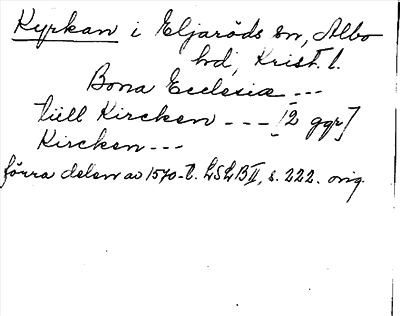 Kyrkan i Eljaröds sn, Albo
hd, Krist. l.
Bona Ecclesia ---
tiill Kircken --- [2 ggr]
Kircken ---
förra delen av 1570-t. LSLB II, s. 222. orig.